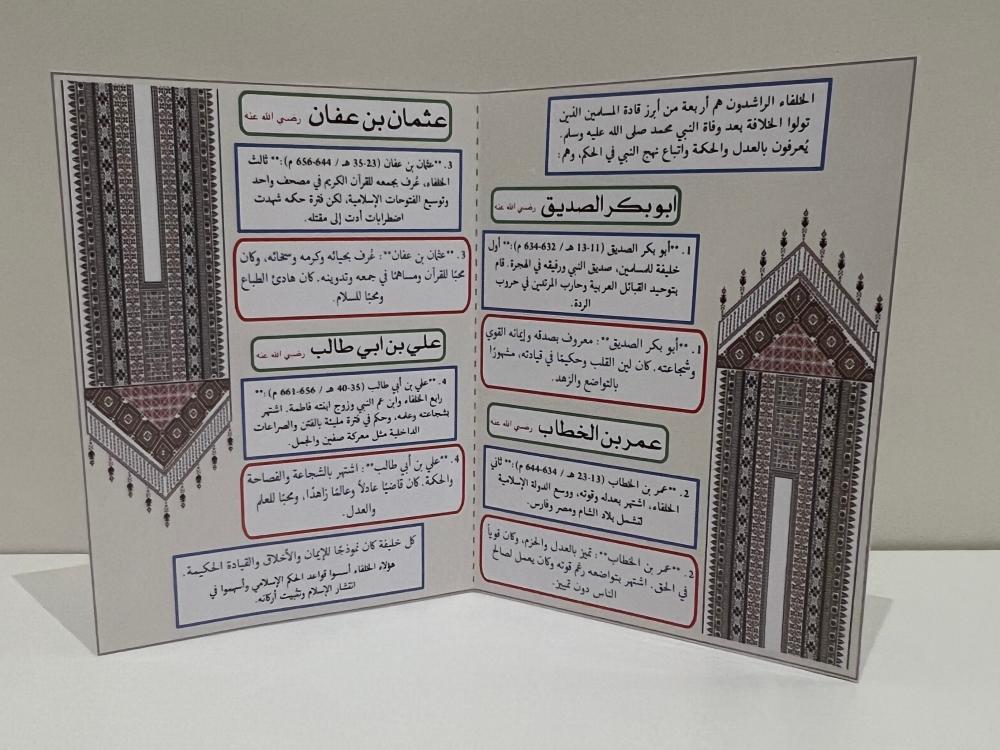 الخلفاء الراشدون هم أربعة من أبرز قادة المسلمين الذين
تولوا الخلافة بعد وفاة النبي محمد صلى الله عليه وسلم.
يُعرفون بالعدل والحكمة واتباع نهج النبي في الحكم، وهم:
ابو بكر الصديق رضي الله عنه
1. **أبو بكر الصديق (11-13 هـ / 632-634 م):** أول
خليفة للمسلمين، صديق النبي ورفيقه في الهجرة. قام
بتوحيد القبائل العربية وحارب المرتدين في حروب
الردة.
1. **أبو بكر الصديق**: معروف بصدقه وإيمانه القوي
وشجاعته. كان لين القلب وحكيمًا في قيادته، مشهورًا
بالتواضع والزهد.
عمر بن الخطاب رضي الله عنه
2. **عمر بن الخطاب (13-23 هـ / 634-644 م):** ثاني
الخلفاء، اشتهر بعدله وقوته، ووسع الدولة الإسلامية
لتشمل بلاد الشام ومصر وفارس.
2. **عمر بن الخطاب**: تميز بالعدل والحزم، وكان قوياً
في الحق. اشتهر بتواضعه رغم قوته وكان يعمل لصالح
الناس دون تمييز.
عثمان بن عفان رضي الله عنه
3. **عثمان بن عفان (23-35 هـ / 644-656 م):** ثالث
الخلفاء، عُرف بجمعه للقرآن الكريم في مصحف واحد
وتوسيع الفتوحات الإسلامية، لكن فترة حكمه شهدت
اضطرابات أدت إلى مقتله.
3. **عثمان بن عفان**: عُرف بحيائه وكرمه وسخائه، وكان
محبًا للقرآن ومساهمًا في جمعه وتدوينه. كان هادئ الطباع
ومحبًا للسلام.
علي بن ابي طالب رضي الله عنه
4. **علي بن أبي طالب (35-40 هـ / 656-661 م):**
رابع الخلفاء وابن عم النبي وزوج ابنته فاطمة. اشتهر
بشجاعته وعلمه، وحكم في فترة مليئة بالفتن والصراعات
الداخلية مثل معركة صفين والجمل.
4. **علي بن أبي طالب**: اشتهر بالشجاعة والفصاحة
والحكمة. كان قاضيًا عادلًا وعالمًا زاهدًا، ومحبًا للعلم
والعدل.
كل خليفة كان نموذجًا للإيمان والأخلاق والقيادة الحكيمة.
هؤلاء الخلفاء أسسوا قواعد الحكم الإسلامي وأسهموا في
انتشار الإسلام وتثبيت أركانه.